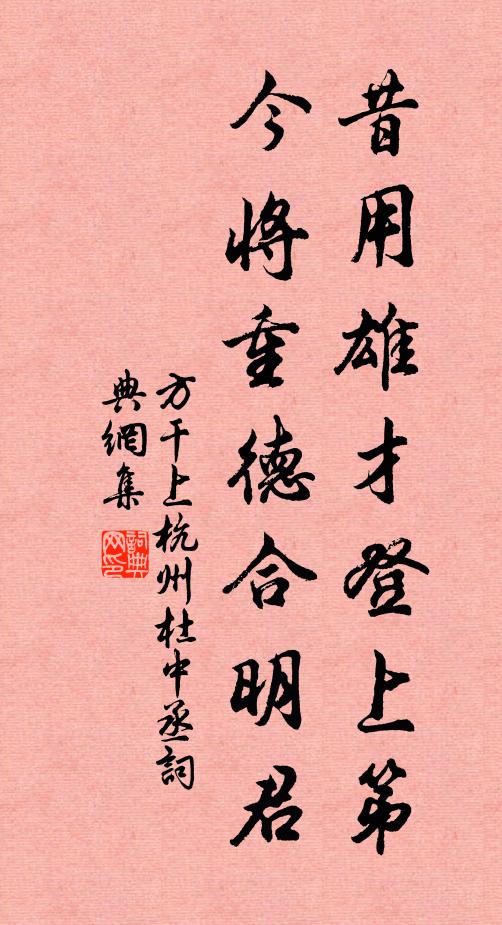 昔用雄才登上第
今將重德合明君
方干上杭州杜中丞詞
典網集
詞典
网印